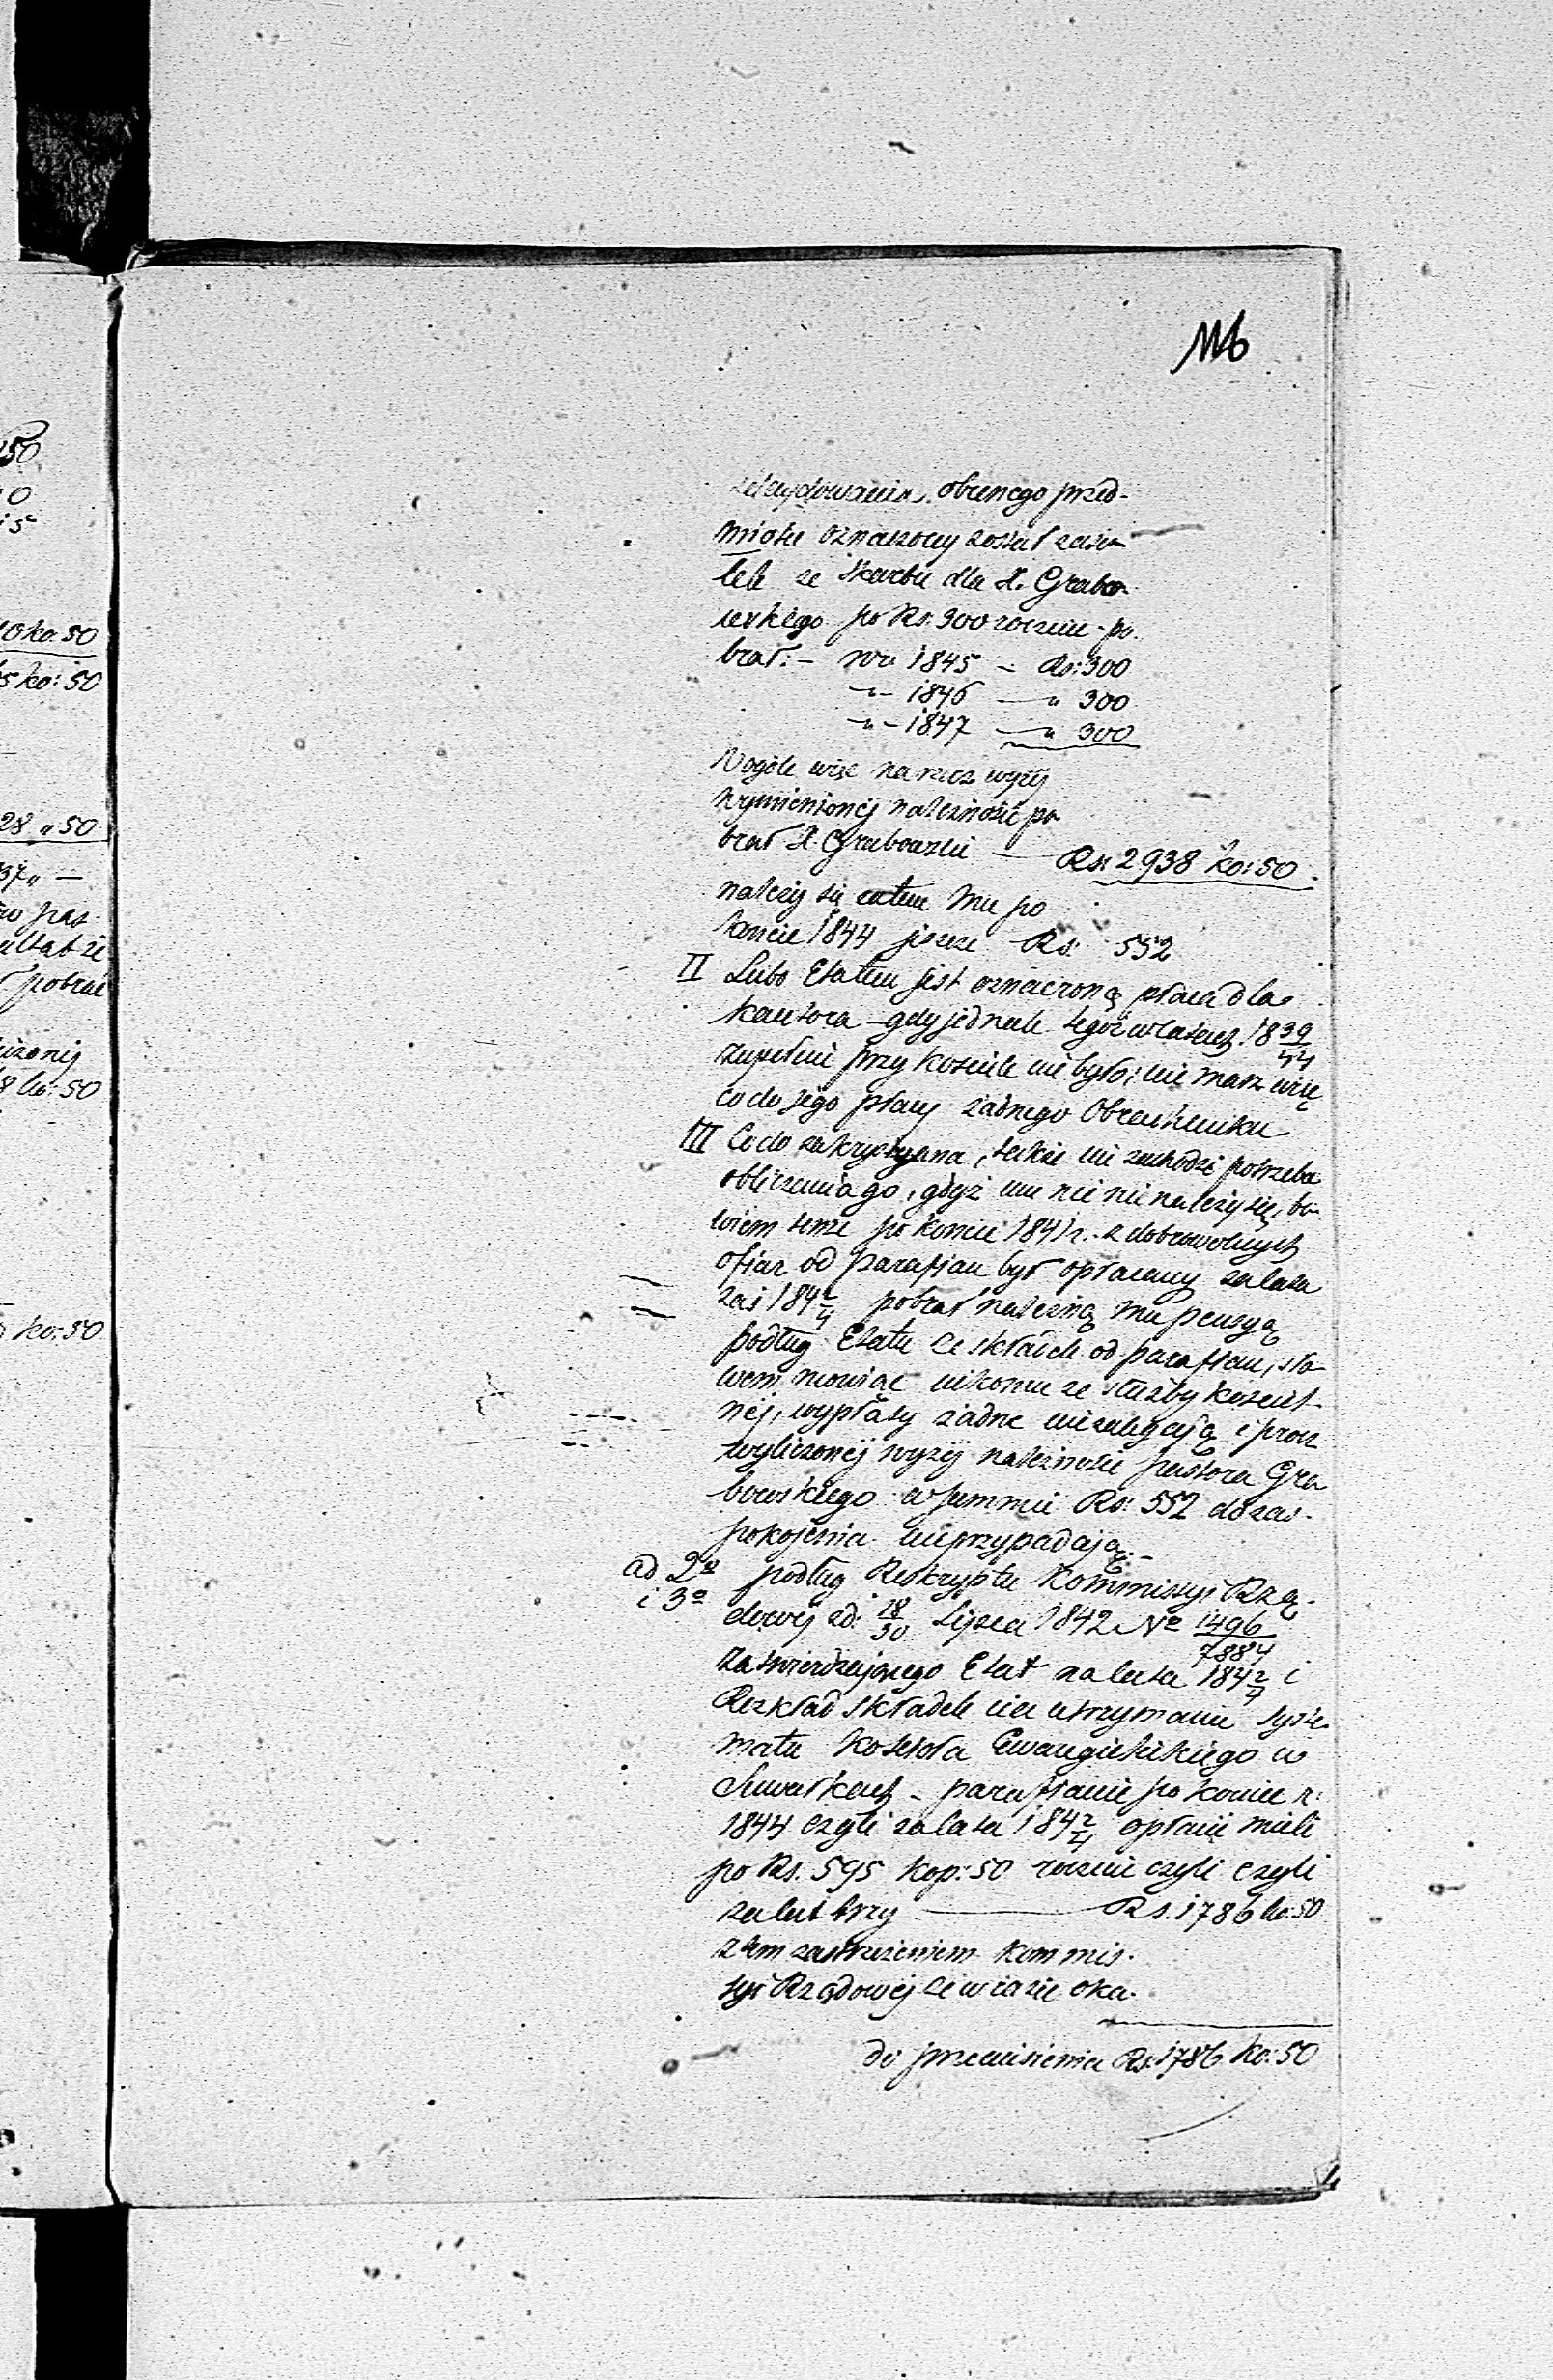 50
0
10 ko: 50
5 ko: 50
28 „ 50
37 „ —
pobrał
ko: 50
ko: 50
obecnego przed-
miotu oznaczony został zasi-
łek ze Skarbu dla X. Grabo-
wskiego po Rs: 300 rocznie - po-
brał: - w r. 1845 - Rs: 300
„ - 1846 — „ 300
„ - 1847 — „ 300
W ogóle więc na rzecz wyżéj
wymienionéj należności po-
brał X. Grabowski — Rs: 2938 ko: 50
należy się zatem mu po
koniec 1844 jeszcze Rs: 552
II Lubo Etatem jest oznaczoną płaca dla
kantora - gdy jednak tegoż w latach 1839/44
zupełnie przy kościele nie było; nie masz więc
co do jego płacy żadnego Obrachunku
III Co do zakrystyana, także nie zachodzi potrzeba
obliczenia go, gdyż mu nic nie należy się, bo-
wiem tenże po koniec 1841 r. z dobrowolnych
ofiar od parafian był opłacany za lata
zaś 184 2/4 pobrał należną mu pensyą
podług Etatu ze składek od parafian, sło-
wem mówiąc nikomu ze służby kościel-
néj, wypłaty żadne nie zalegają i prócz
wyliczonéj wyżéj należności pastora Gra-
bowskiego w summie Rs: 552 do zas-
pokojenia nie przypadają. -
ad 2º podług Reskryptu Kommissyi Rzą-
i 3º dowéj z d: 18/30 Lipca 1842 Nº 1496/7884
zatwierdzającego Etat na lata 184 2/4 i
Rozkład składek na utrzymanie syste-
matu Kościoła Ewangielickiego w
Suwałkach - parafianie po koniec r:
1844 czyli za lata 184 2/4 opłacić mieli
po Rs. 595 kop: 50 rocznie czyli czyli
za lat trzy — Rs. 1786 ko: 50
z tem zastrzeżeniem Kommis-
syi Rządowéj że w razie oka-
do przeniesienia Rs. 1786 ko: 50